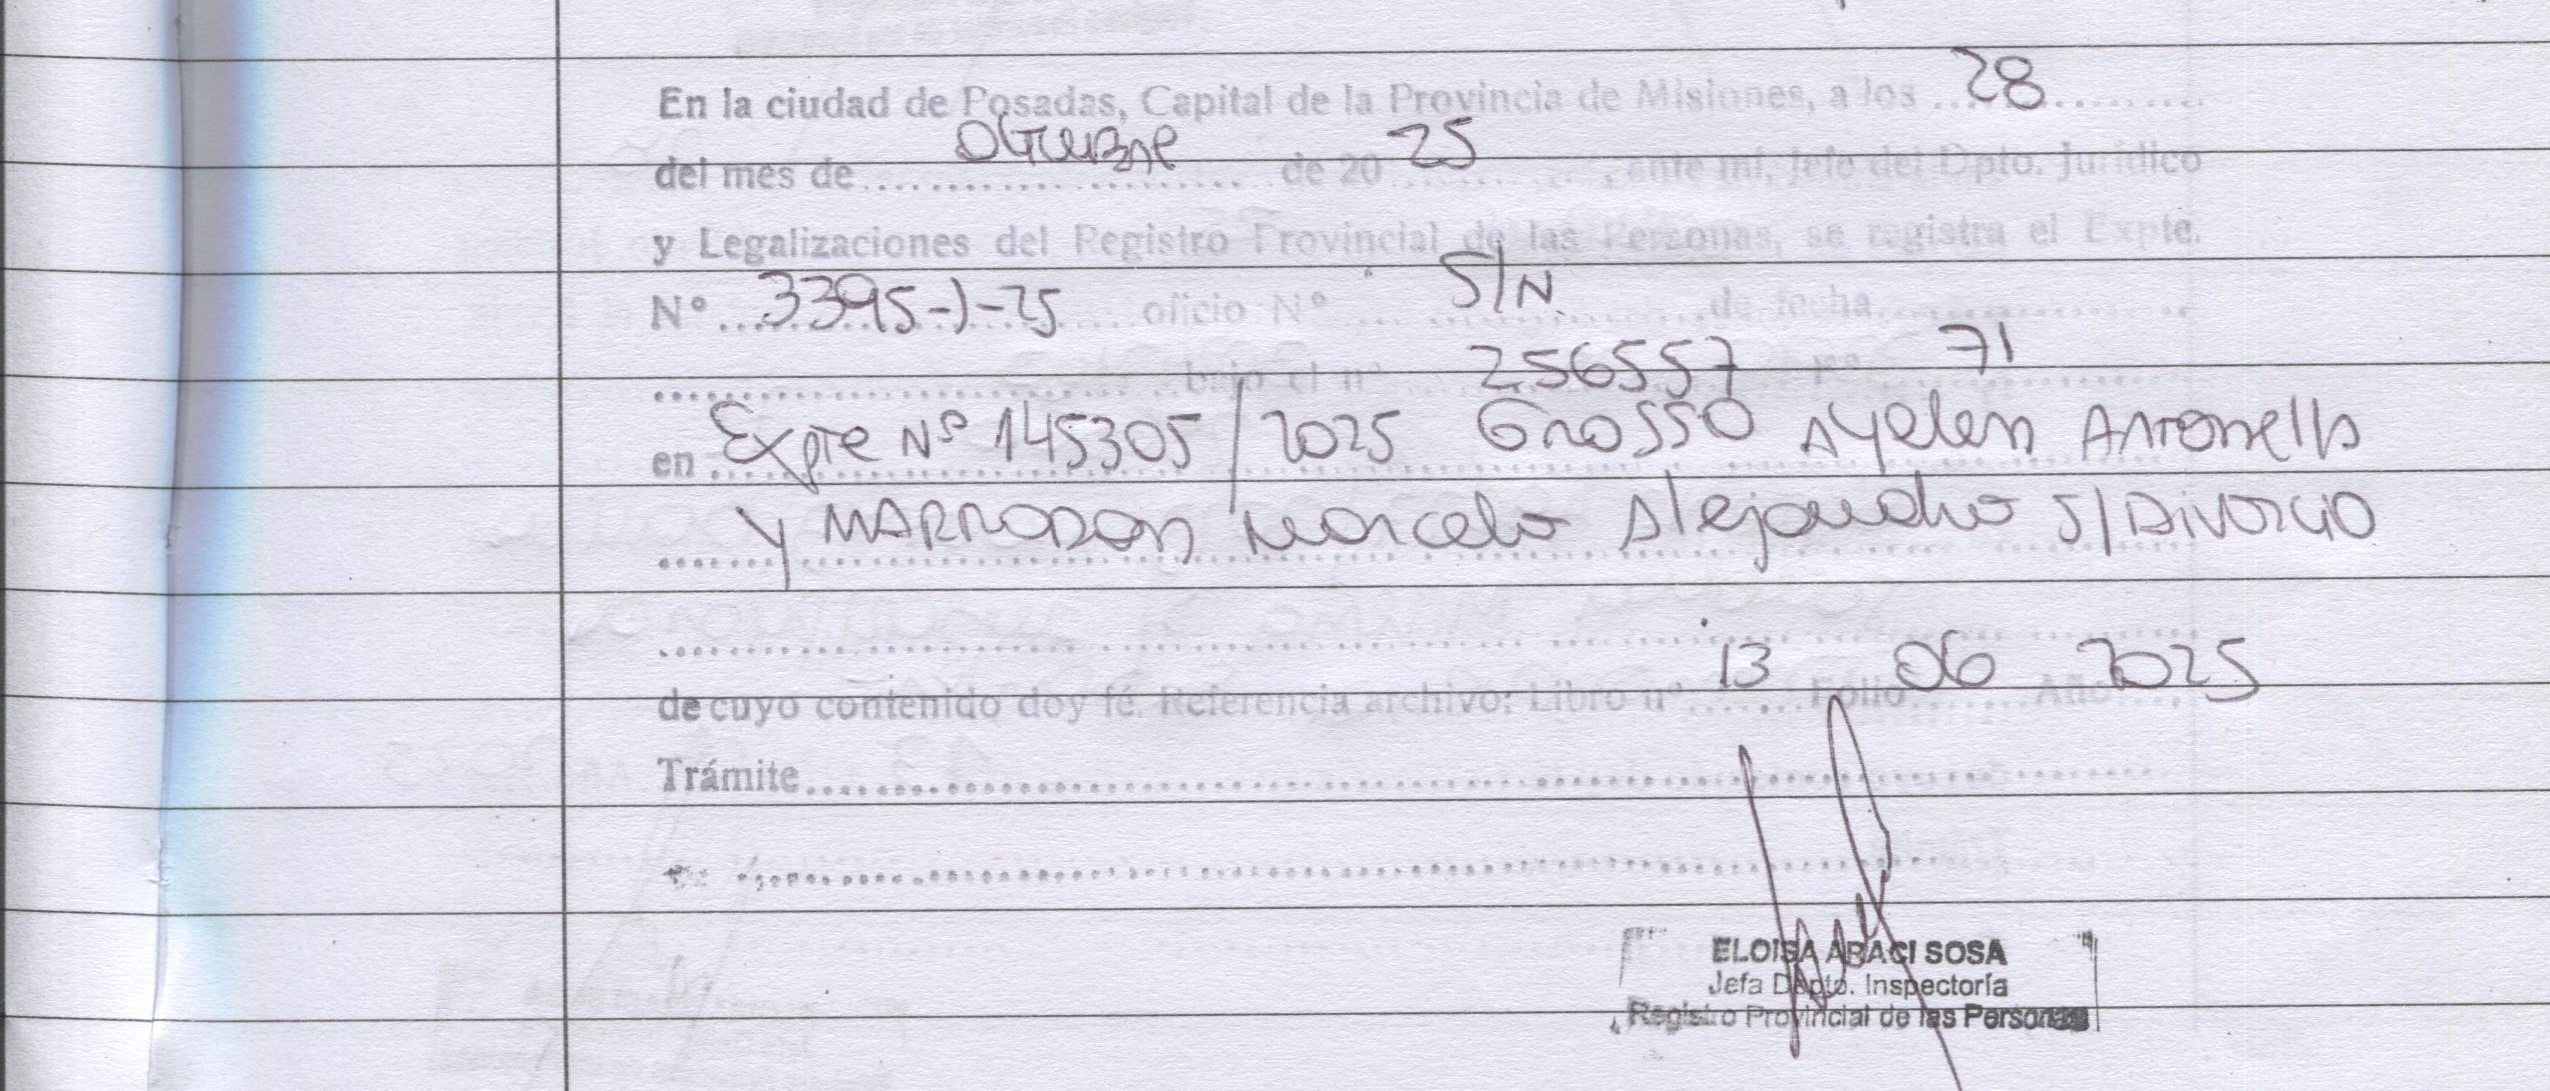 En la ciudad de Posadas, Capital de la Provincia de Misiones, a los ....28.........
del mes de ....Octubre.... de 20 25 , ante mi, Jefe del Dpto. Jurídico
y Legalizaciones del Registro Provincial de las Personas, se registra el Expte.
N° ...3395-J-25... oficio N° ...S/N... de fecha..............
.............. bajo el n° 256557 Fº 71
en Expte Nº 145305/2025 Grosso Ayelen Antonella
y MARRODAN Marcelo Alejandro S/DIVORCIO
..............
de cuyo contenido doy fé. Referencia archivo: Libro n° 13 Folio 06 Año 2025
Trámite..............
ELOISA ARACI SOSA
Jefa Dpto. Inspectoría
Registro Provincial de las Personas